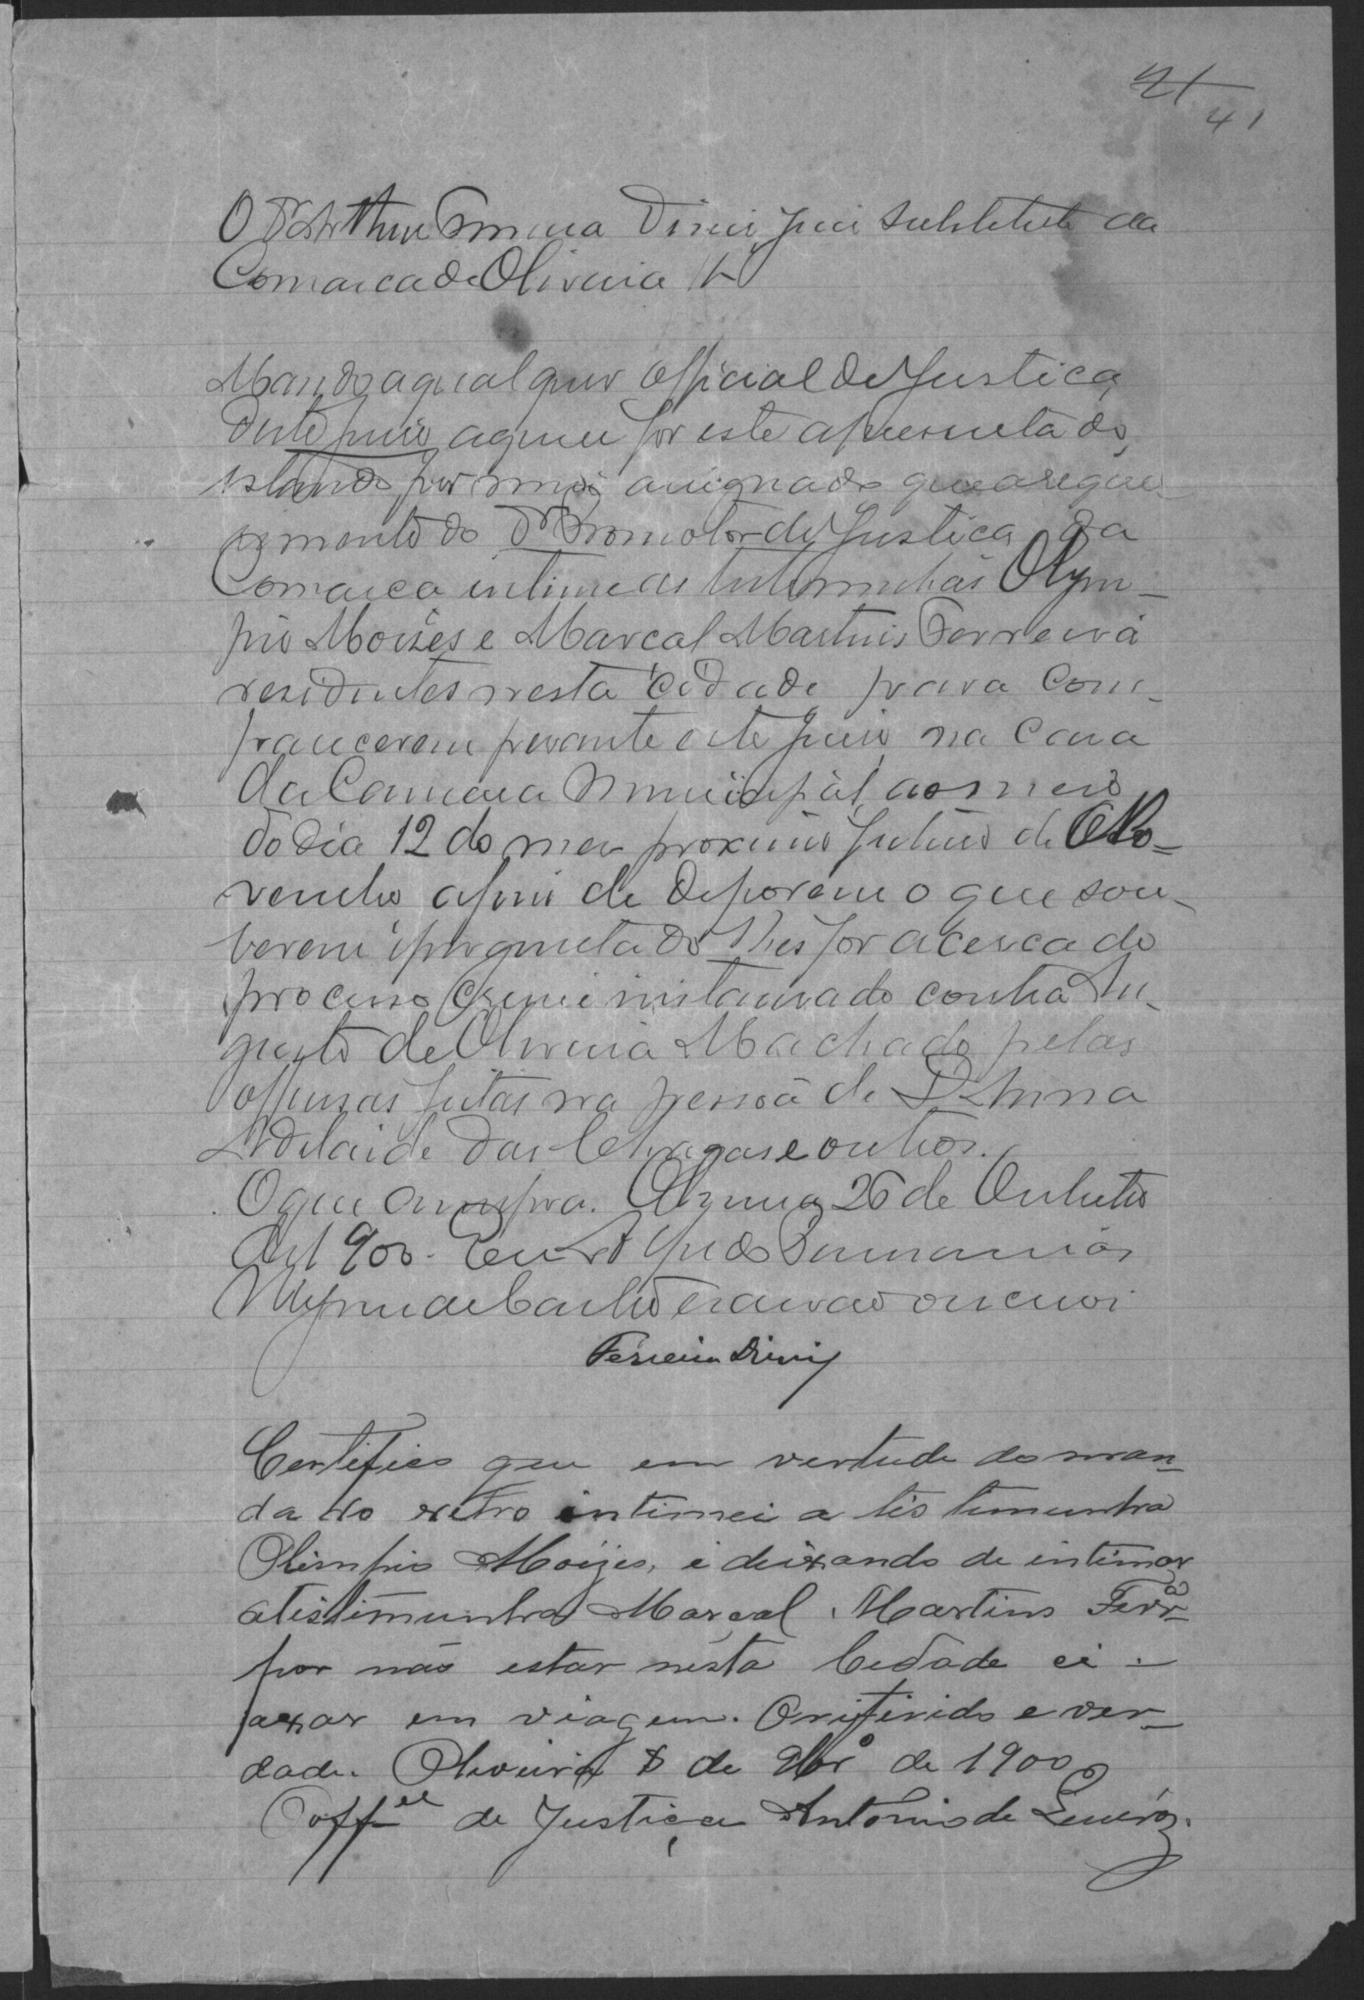 41
41
O Dr Arthur Diniz Juiz substituto da
Comarca de Oliveira
Mando a qualquer official de Justiça
deste juizo a quem for este apresentado,
estando por mim assignado que a reque-
rimento do Dr Promotor de Justiça da
Comarca intime as testemunhas Olym-
pio Moizés e Marcal Martins Ferreira
residentes nesta cidade para com-
parecerem perante este Juizo na Casa
da Camara Municipal, ao meio
do dia 12 do mez proximo futuro de No-
vembro afim de deporem o que sou-
berem e perguntado lhes for acerca do
processo crime instaurado contra Au-
gusto de Oliveira Machado pelas
offensas feitas na pessoa de D. Anna
Adelaide das Chagas e outros.
O que cumpra. Oliveira 26 de Outubro
de 1900. Eu
de Castro escrivão o escrevi
Ferreira Diniz
Certifico que em vertude do man-
dado retro intimei a testimunha
Olimpio Moizes, i deixando de intimar
atistimunha Marçal Martins Ferrª
por não estar nésta Cidade ei
axar em viagem. Oriferido e ver-
dade. Oliveira 8 de 9brº de 1900
O offel de Justiça Antonio de Queiróz.